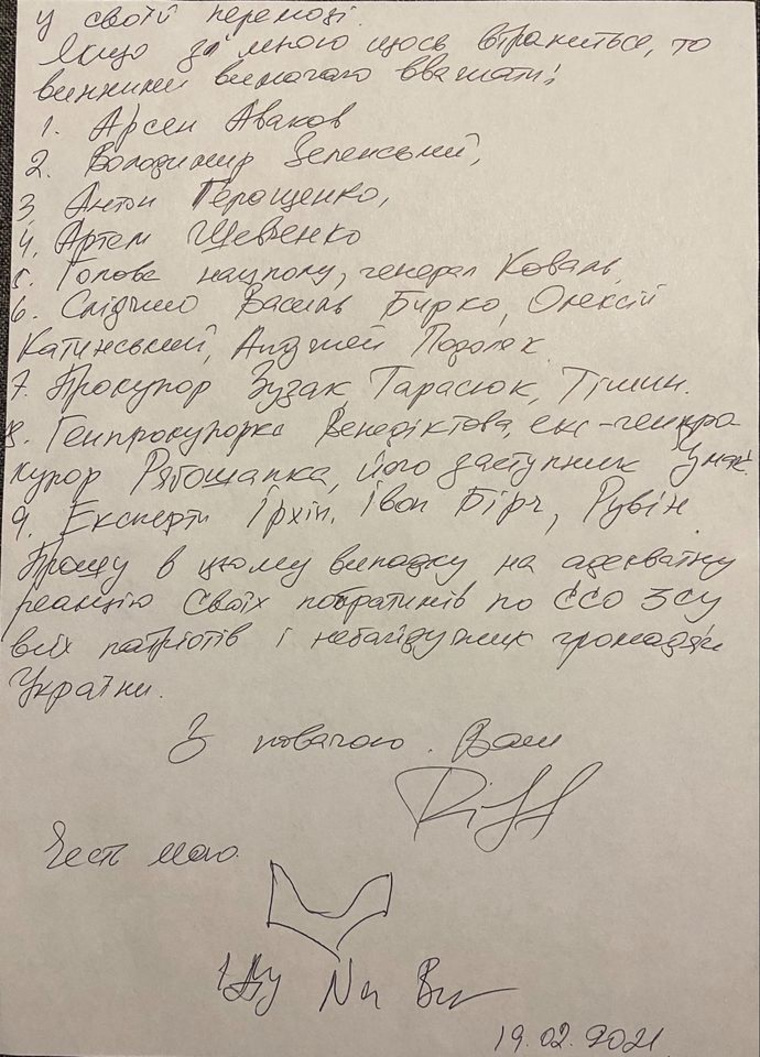 у своїй перемозі.
Якщо зі мною щось втрапиться, то
винними вимагаю вважати:
1. Арсен Аваков
2. Володимир Зеленський,
3. Антон Геращенко,
4. Артем Шевченко
5. Голова нацполу, генерал Коваль,
6. Слідчию Василь Бирко, Олексій
Катинський, Анджей Подоляк
7. Прокурор Зузак, Тарасюк, Тішин.
8. Генпрокурорка Венедіктова, екс-генпро
курор Рябошапка, його заступник
9. Експерти Ірхін, Івон Бірч, Рувін
Прошу в цьому випадку на адекватну
реакцію своїх побратимів по ССО ЗСУ
всіх патріотів і небайдужих громадян
України.
З повагою. Ваш
Riff
Честь маю.
Іду На Ви
19.02.2021